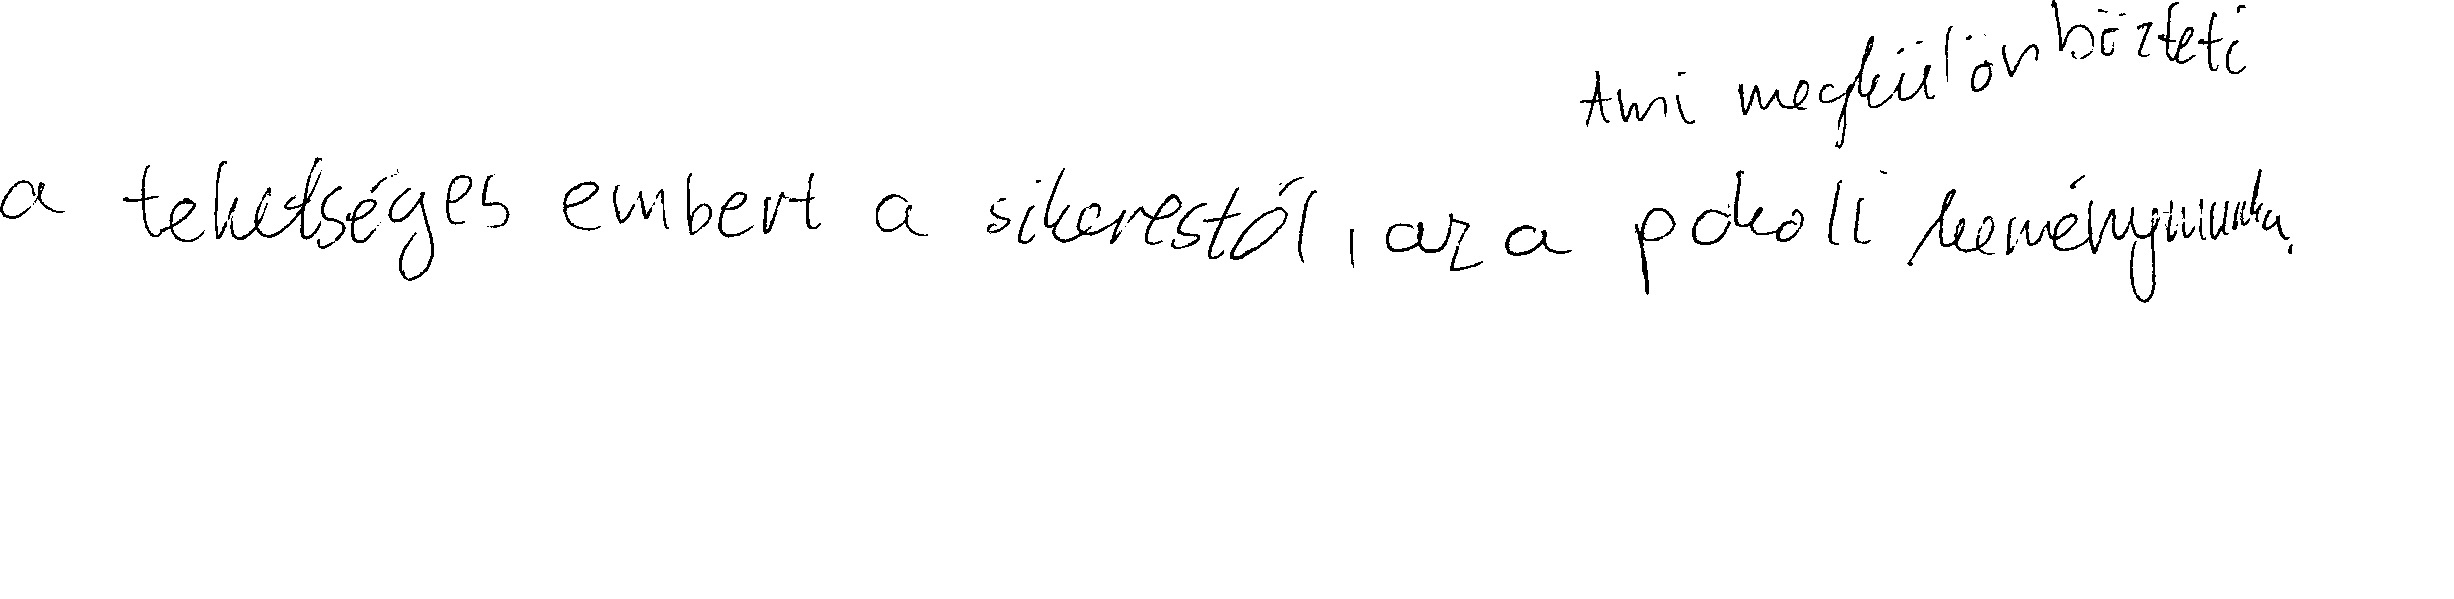 Ami megkülönbözteti
a tehetséges embert a sikerestől, az a pokoli keménymunka.